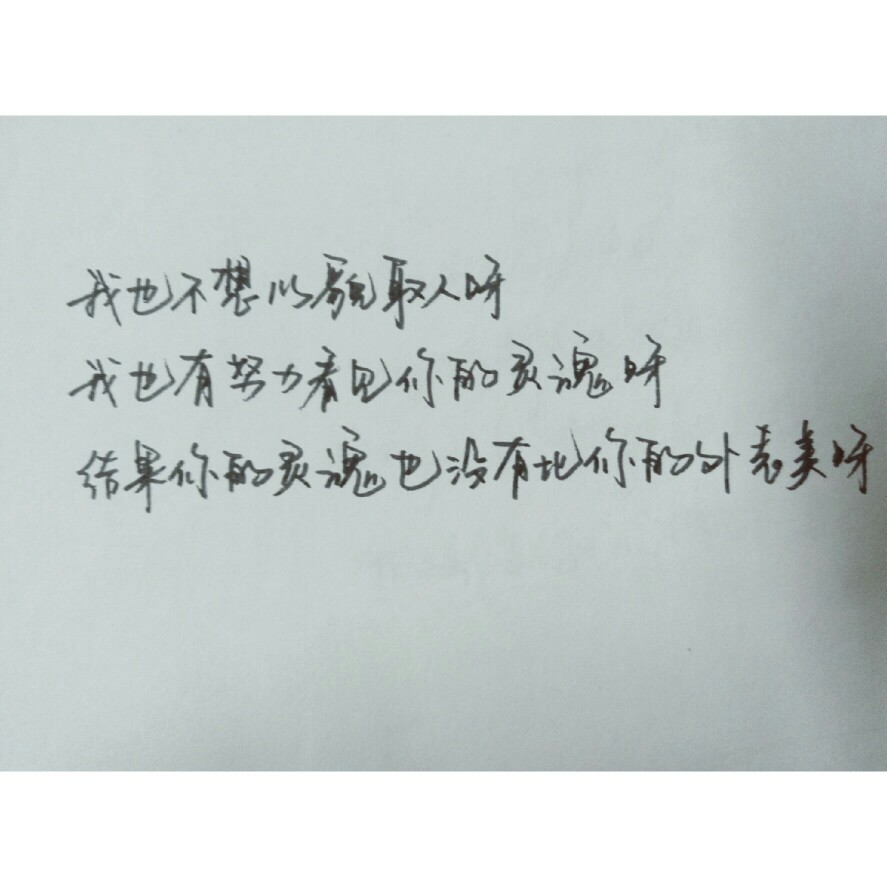 我也不想以貌取人呀
我也有努力看见你的灵魂呀
结果你的灵魂也没有比你的外表美呀